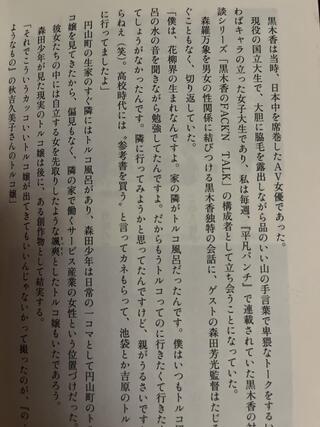 黒木香は当時、日本中を席巻したAV女優であった。
現役の国立大生で、大胆に腋毛を露出しながら品のいい山の手言葉で卑猥なトークをするい
わばキャラの立った女子大生であり、私は毎週、『平凡パンチ』で連載されていた黒木香の対
談シリーズ「黒木香のFACKN TALK」の構成者として立ち会うことになっていた。
森羅万象を男女の性関係に結びつける黒木香独特の会話に、ゲストの森田芳光監督はたじろ
ぐこともなく、切り返していた。
「僕は、花柳界の生まれなんですよ。家の隣がトルコ風呂だったんです。僕はいつもトルコ風
呂の水の音を聞きながら勉強してたんですよ。だからもうトルコってのに行きたくて行きたく
てしょうがなかったんです。隣に行ってみようかと思ってたんですけど、親がうるさいですか
らねえ(笑)。高校時代には、〝参考書を買う〟と言ってカネもらって、池袋とか吉原のトルコ
に行ってましたよ」
円山町の生家のすぐ隣にはトルコ風呂があり、森田少年は日常の一コマとして円山町のトル
コ嬢を見てきたから、偏見もなく、隣の家で働くサービス産業の女性という位置づけだった。
彼女たちの中には自立する女を先取りしたような颯爽としたトルコ嬢もいたであろう。
森田少年が見た現実のトルコ嬢は後に、ある創作物として結実する。
「それでこういうカッコいいトルコ嬢が出てきてもいいんじゃないかって撮ったのが、『の
ようなもの』の秋吉久美子さんのトルコ嬢」